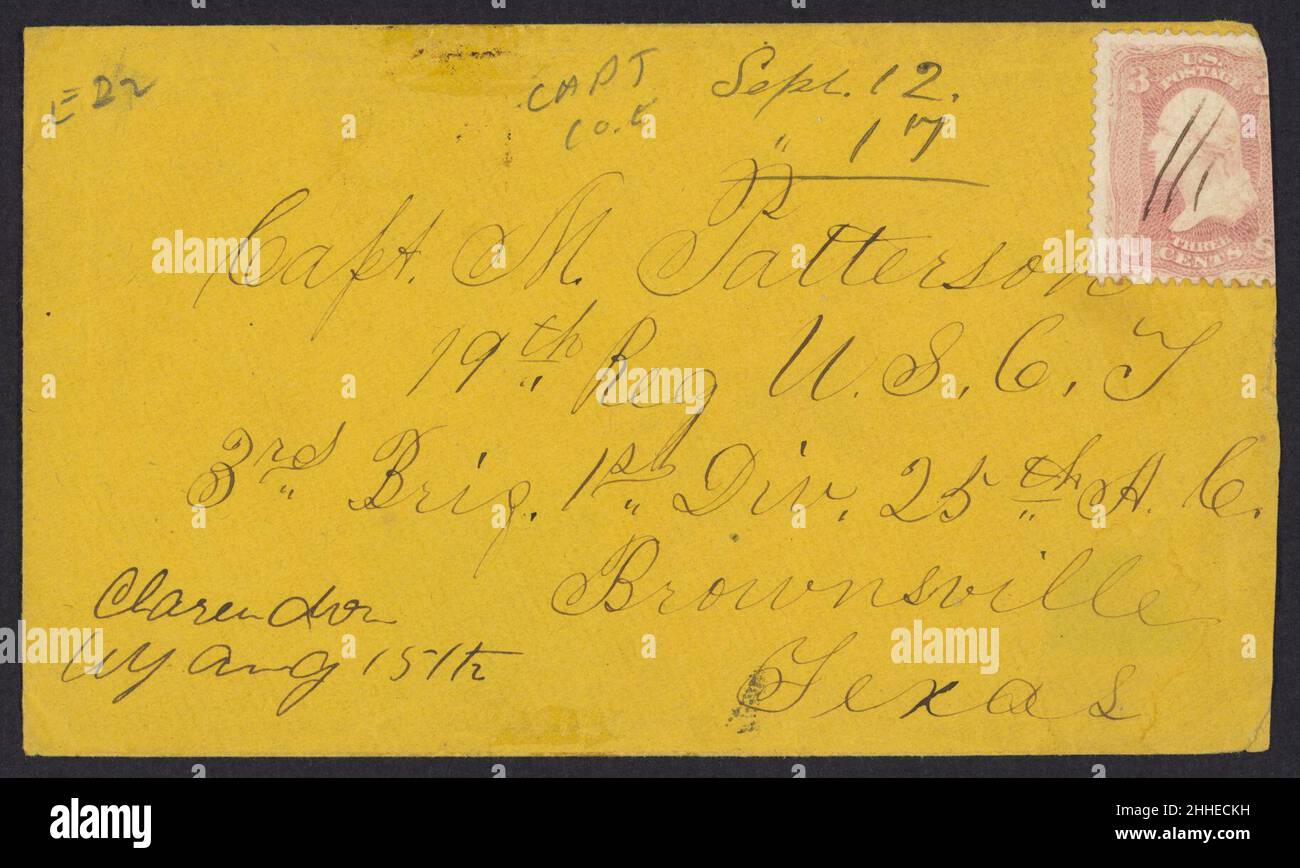 E 22
CAPT
Co. E
Sept. 12.
" 17
3 U.S. 3
POSTAGE
THREE
CENTS
Capt. M. Patterson
19th Reg U. S. C. T
3rd Brig. 1st Div. 25th A. C.
Brownsville
Texas
Clarendon
NY Aug 15th
alamy
Image ID: 2HHECKH
www.alamy.com